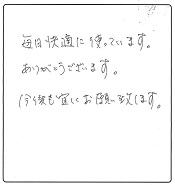 毎日快適に使っています。
ありがとうございます。
今後も宜しくお願い致します。